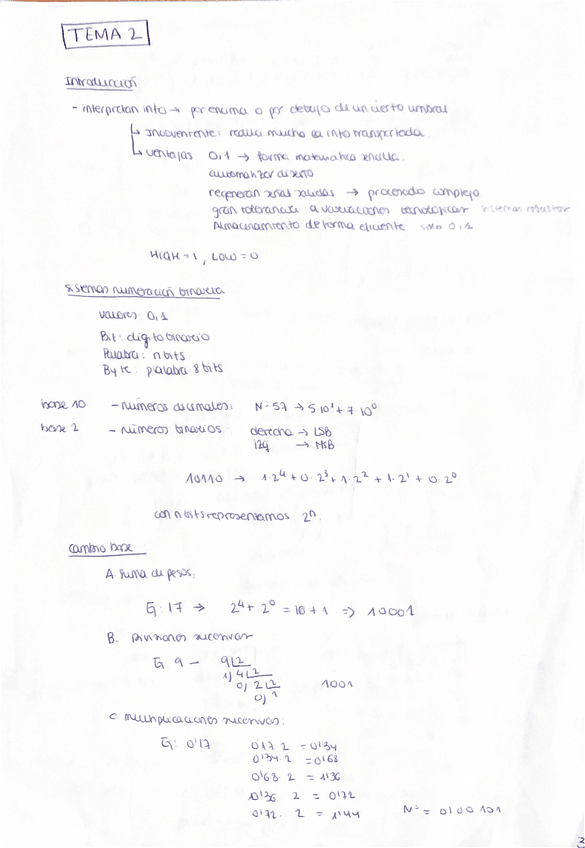 TEMA 2
Introducción
- interpretan info → por encima o por debajo de un cierto umbral
↳ Inconveniente: reduce mucho la info transportada.
↳ ventajas 0,1 → forma matematica sencilla.
automatizar diseño
regeneran señal salidas → procesado complejo
gran tolerancia a variaciones tecnologicas sistemas robustos
Almacenamiento de forma eficiente solo 0,1
HIGH = 1, LOW = 0
Sistemas numeración binaria
valores: 0,1
Bit: digito binario
Palabra: n bits
Byte: palabra 8 bits
base 10 - números decimales: N=57 → 5·10¹ + 7·10⁰
base 2 - números binarios: derecha → LSB
izq → MSB
10110 → 1·2⁴ + 0·2³ + 1·2² + 1·2¹ + 0·2⁰
con n bits representamos 2ⁿ.
Cambio base
A Suma de pesos.
Ej: 17 → 2⁴ + 2⁰ = 16 + 1 => 10001
B. Divisiones sucesivas
Ej 9 - 9 | 2
1) 4 | 2
0) 2 | 2 1001
0) 1
C. Multiplicaciones sucesivas:
Ej: 0'17 0'17·2 = 0'34
0'34·2 = 0'68
0'68·2 = 1'36
10'36 2 = 0'72
0'72· 2 = 1'44 Nº = 0100101
3